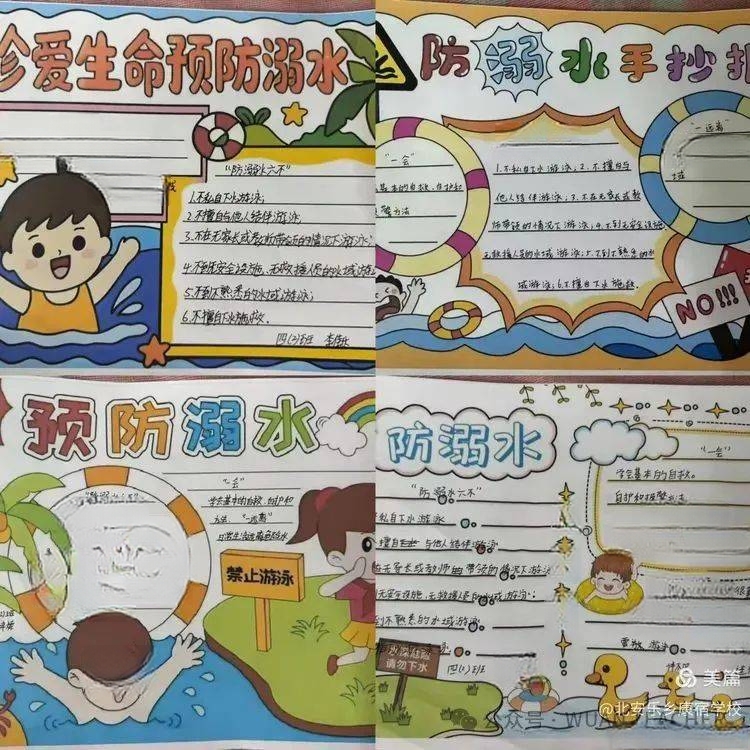 珍爱生命预防溺水
"防溺水六不"
1.不私自下水游泳;
2.不擅自与他人结伴游泳;
3.不在无家长或教师带领的情况下游泳
4.不到无安全设施、无救援人员的水域游泳
5.不到不熟悉的水域游泳;
6.不擅自下水施救.
四(2)班
防溺水手抄报
"一会"
基本的自救、自护和
报警方法
1.不私自下水游泳;2.不擅自与
他人结伴游泳;3.不在无家长或教
师带领的情况下游泳;4.不到无安全设施、
无救援人员的水域游泳;5.不到不熟悉的水
域游泳;6.不擅自下水施救.
"一远离"
NO!!!
预防溺水
"一会"
学会基本的自救、自护和
"一远离"
禁止游泳
防溺水
"防溺水六不"
私自下水游泳
擅自与他人结伴游泳
在无家长或教师带领的情况下游泳
无安全设施、无救援人员的水域游泳;
到不熟悉的水域游泳
四(1)班
水深危险
请勿下水
"一会"
学会基本的自救、
自护和报警方法
美篇
公众号·WUAN
@北安乐乡康宿学校